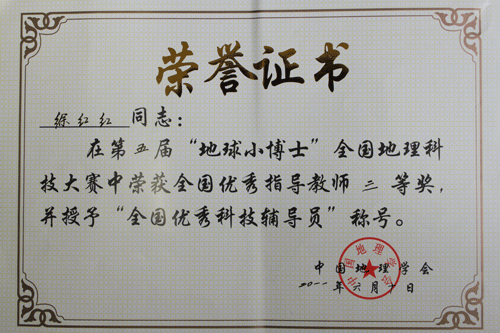 荣誉证书
徐红红 同志：
在第五届“地球小博士”全国地理科
技大赛中荣获全国优秀指导教师 三 等奖，
并授予“全国优秀科技辅导员”称号。
中国地理学会
二〇一一年六月十日
中国地理学会